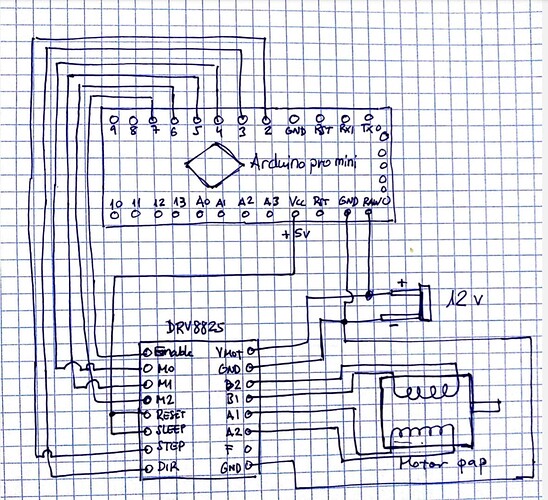 9 8 7 6 5 4 3 2 GND RST RX1 TX0
Arduino pro mini
10 11 12 13 A0 A1 A2 A3 Vcc RST GND RAW
+5V
+
12 v
-
DRV8825
Enable VMOT
M0 GND
M1 B2
M2 B1
RESET A1
SLEEP A2
STEP F
DIR GND
Motor pap